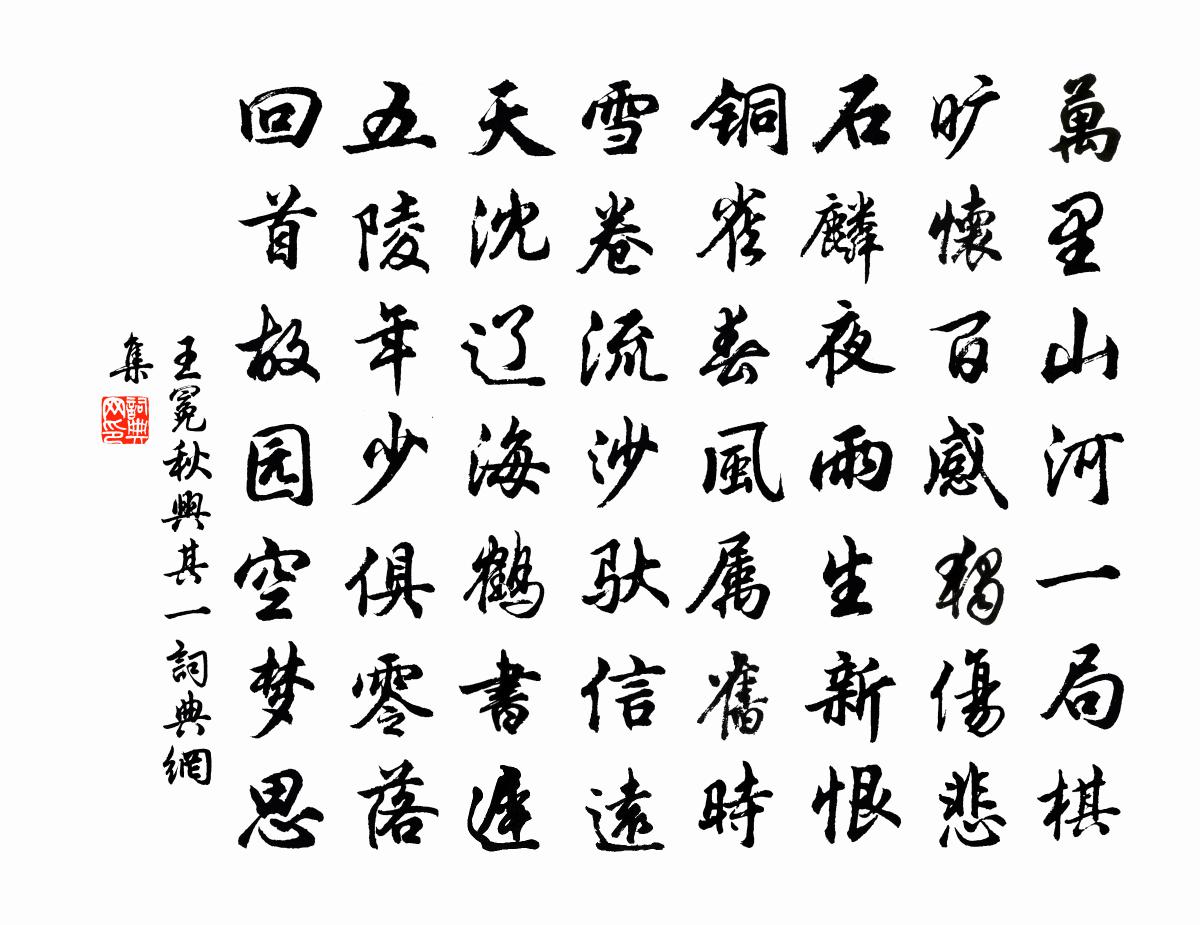 萬里山河一局棋
旷懷百感獨傷悲
石麟夜雨生新恨
铜雀春風属舊時
雪卷流沙馱信遠
天沈辽海鶴書遲
五陵年少俱零落
回首故园空梦思
王冕秋興其一詞典網
集
詞典
网印